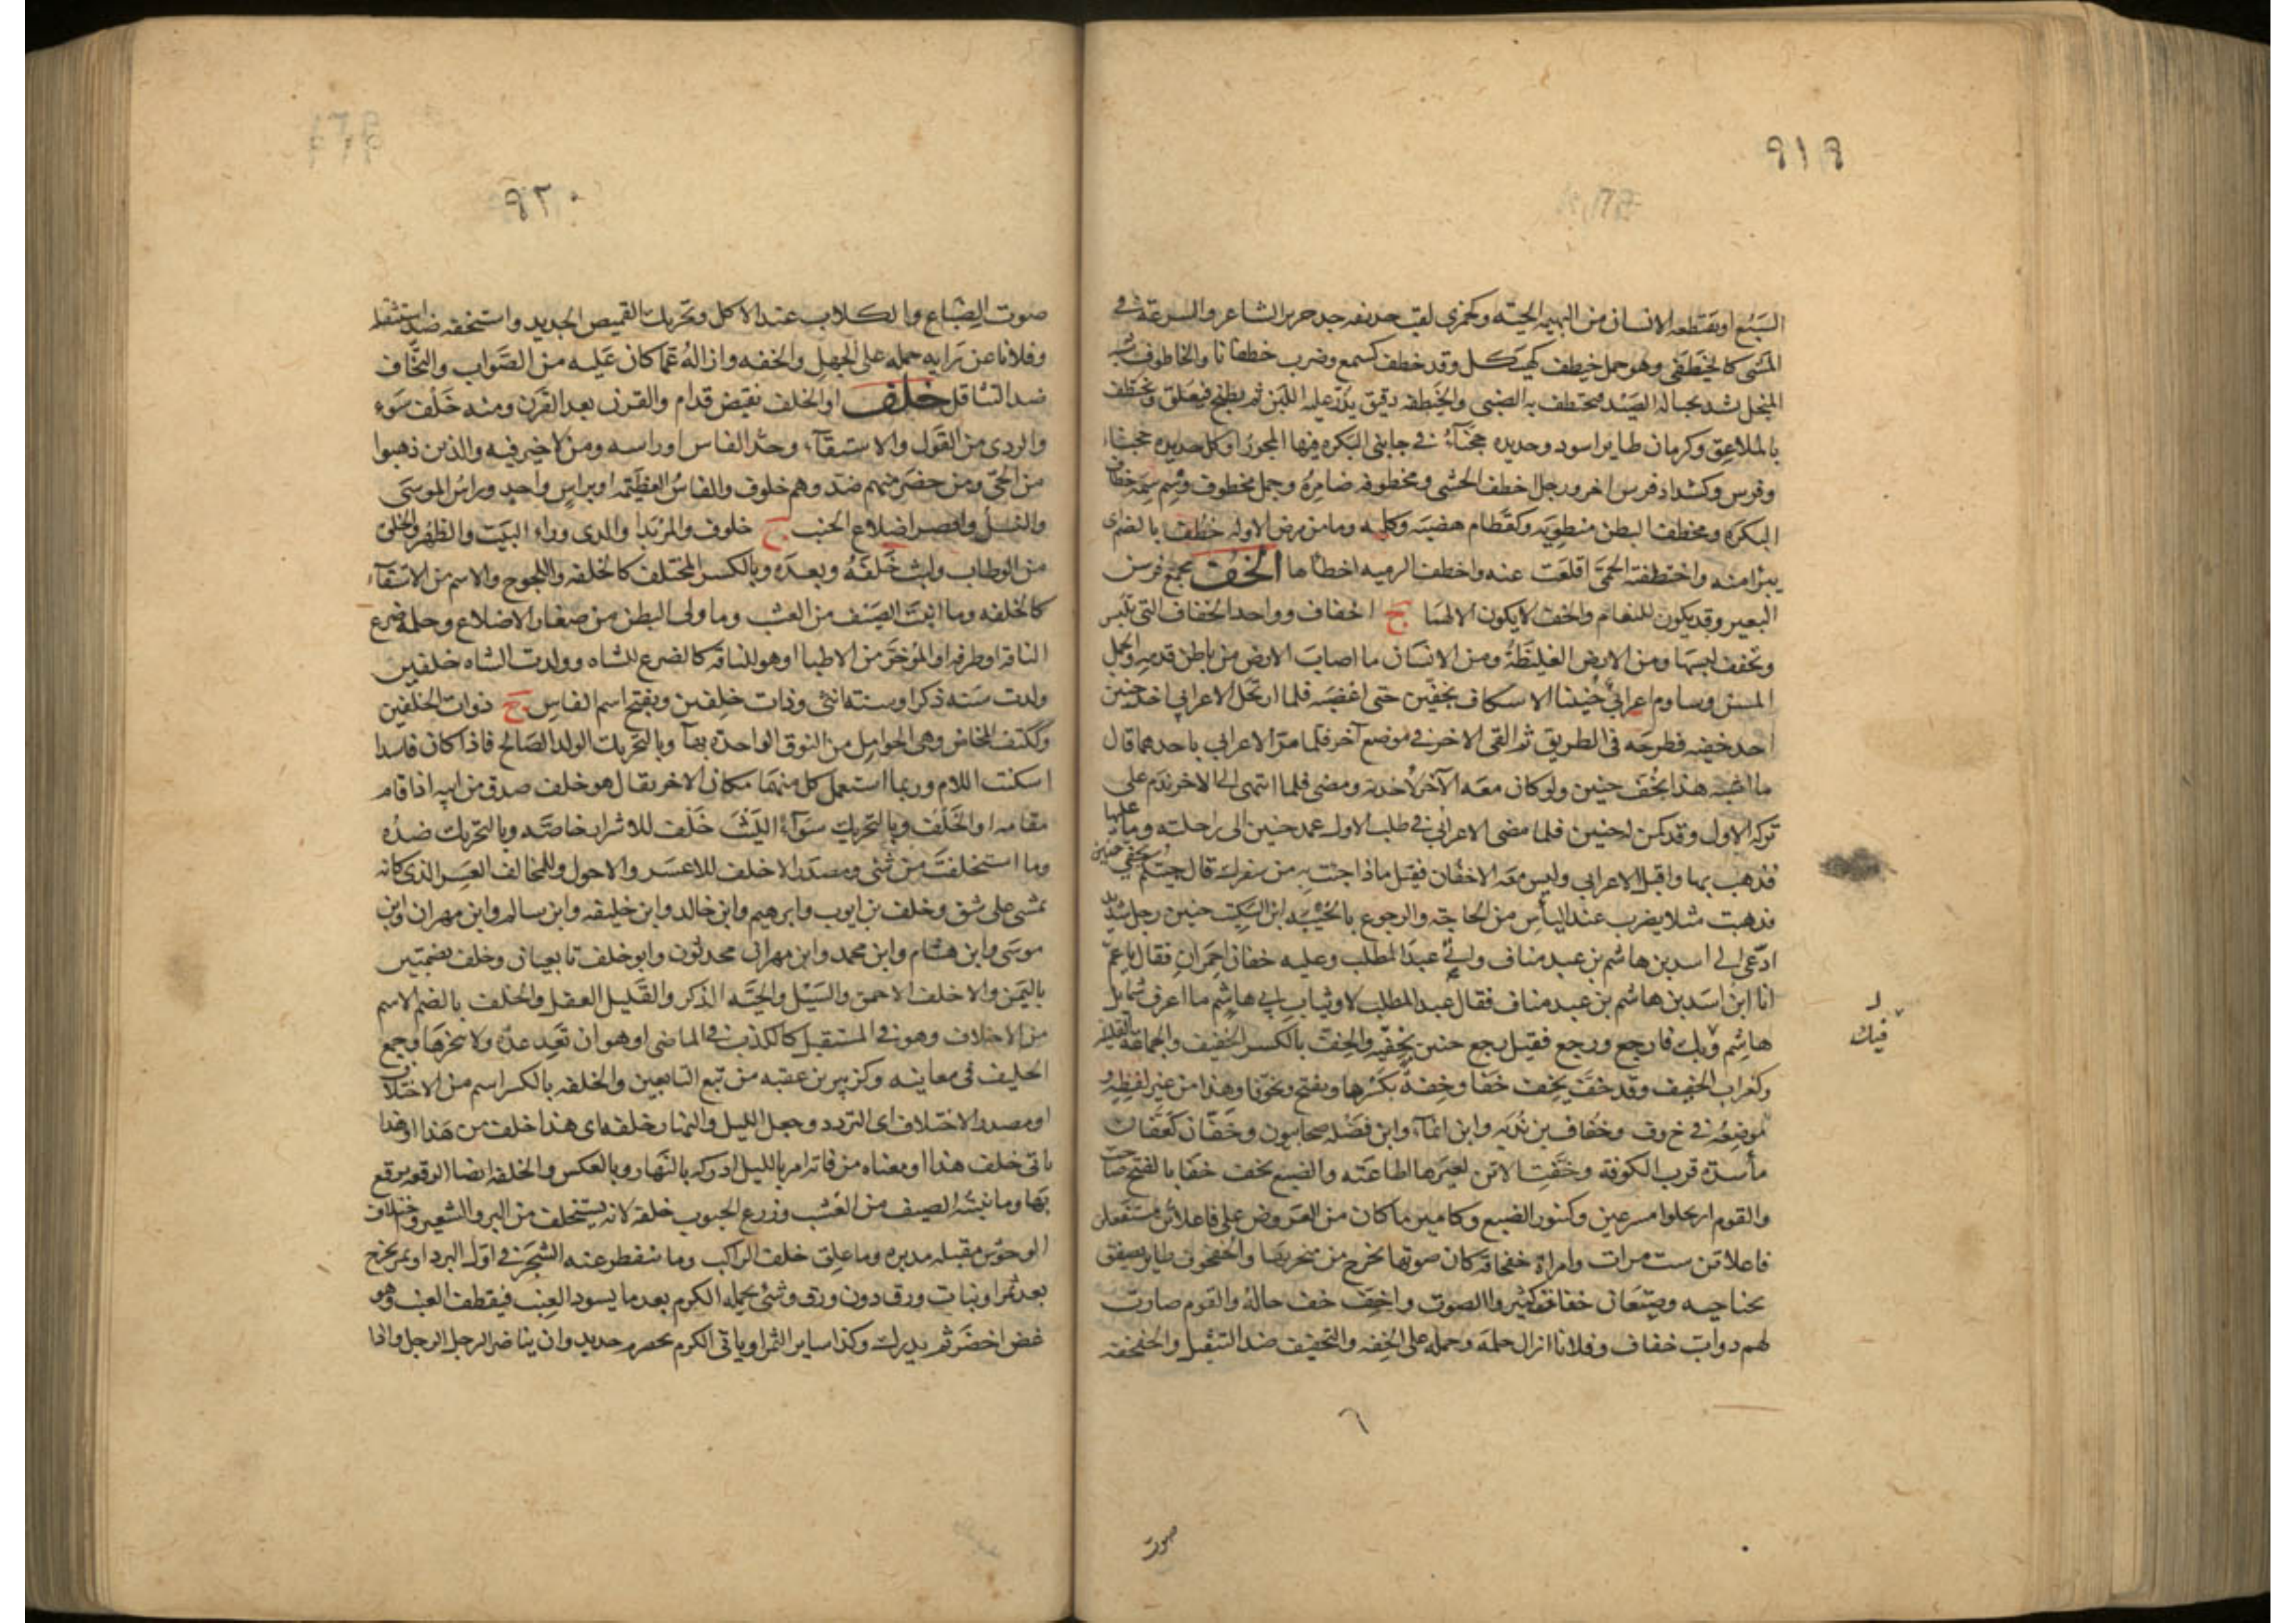 ٩١٩
السبع او يقتطعه الانسان من البهيمه الحيّه وكجمزى لقب حذيفه جد جرير الشاعر والسرعة في
المشى كالخيطفى وهو جمل خيطف كهيكل وقد خطف كسمع وضرب خطفانا والخاطوف شبه
المنجل يشد بحباله الصيد فيختطف به الظبي والخطيفه دقيق يذر عليه اللبن ثم يطبخ فيعلق ويختطف
بالملاعق وكرمان طاير اسود وحديده حجناء في جانبى البكره فيها المحور او كل حديده حجناء
وفرس وكشداد فرس اخر ورجل اخطف الحشى ومخطوفه ضامره وجمل مخطوف وسم سمة خطاف
البكره ومخطف البطن منطويه وكقطام هضبه وكلبه وما من مرض الاوله خطف بالضم اى
يبرا منه واختطفته الحمى اقلعت عنه واخطف الرميه اخطاها الخف مجمع فرسن
البعير وقد يكون للنعام والخف لا يكون الا لهما ج اخفاف وواحد الخفاف التى تلبس
وتخفف لبسها ومن الارض الغليظة ومن الانسان ما اصاب الارض من باطن قدمه والجمل
المسن وساوم اعرابي حنينا الاسكاف بخفين حتى اغضبه فلما ارتحل الاعرابي اخذ حنين
احد خفيه فطرحه في الطريق ثم القى الاخر في موضع آخر فلما مرّ الاعرابي باحدهما قال
ما اشبه هذا بخف حنين ولو كان معه الآخر لاخذته ومضى فلما انتهى الى الاخر ندم على
تركه الاول وقد كمن له حنين فلما مضى الاعرابي في طلب الاول عمد حنين الى راحلته وما عليها
فذهب بها واقبل الاعرابي وليس معه الا خفان فقيل ماذا جئت به من سفرك قال جيتكم بخفى حنين
فذهبت مثلا يضرب عند الياس من الحاجة والرجوع بالخيبه ابن السكيت حنين رجل شديد
ادّعى الى اسد بن هاشم بن عبد مناف واتى عبد المطلب وعليه خفان احمران فقال يا عم
انا ابن اسد بن هاشم بن عبد مناف فقال عبد المطلب لا وثياب ابي هاشم ما اعرف شمايل
هاشم فيك فارجع ورجع فقيل رجع حنين بخفيه والخف بالكسر الخفيف والجماعة القليله
وكغراب الخفيف وقد خف يخف خفا وخفة بكسرها ويفتح وتخوفا وهذا من غير لفظه و
موضعه في خ وف وخفاف بن ندبه وابن ايماء وابن نضله صحابيون وخفان كعفان
مأسده قرب الكوفة وخفت الاتن لعيرها اطاعته والضبع تخف خفا بالفتح صاحت
والقوم ارتحلوا مسرعين وكتنور الضبع وكامير ما كان من العروض على فاعلاتن مستفعلن
فاعلاتن ست مرات وامراة خفخافة كان صوتها يخرج من منخريها والخفخوف طاير يصفق
بجناحيه وضبعان خفاخف كثير والصوت واخف خف حاله والقوم صارت
لهم دواب خفاف وفلانا ازال حلمه وحمله على الخفه والتخفيف ضد التثقيل والخفخفة
فيك
صوت
٩٢٠
صوت الضباع والكلاب عند الاكل وتحريك القميص الجديد واستخفه ضد استثقله
وفلانا عن رايه حمله على الجهل والخفه وازاله عما كان عليه من الصواب والتخاف
ضد التثاقل خلف او الخلف نقيض قدام والقرن بعد القرن ومنه خلف سوء
والردى من القول والاستقاء وحد الفاس او راسه ومن لا خير فيه والذين ذهبوا
من الحى ومن حضر منهم ضد وهم خلوف والفاس العظيمة او براس واحد وراس الموسى
والنسل واقصر اضلاع الجنب ج خلوف والمربد او الذى وراء البيت والظهر والخلق
من الوطاب ولبث خلفه وبعده وبالكسر المختلف كالخلفه واللجوج والاسم من الاستقاء
كالخلفه وما انبت الصيف من العشب وما ولى البطن من صغار الاضلاع وحلمة ضرع
الناقه او طرفه او المؤخر من الاطبا او هو للناقه كالضرع للشاه وولدت الشاه خلفين
ولدت سنه ذكرا وسنه انثى وذات خلفين ويفتح اسم الفاس ج ذوات الخلفين
وككتف المخاض وهى الحوامل من النوق الواحده بهاء وبالتحريك الولد الصالح فاذا كان فاسدا
اسكنت اللام وربما استعمل كل منهما مكان الاخر يقال هو خلف صدق من ابيه اذا قام
مقامه او الخلف وبالتحريك سواء الليث خلف للاشرار خاصه وبالتحريك ضده
وما استخلفت من شئ ومصدر الاخلف للاعسر والاحول وللمخالف العسر الذى كانه
يمشى على شق وخلف بن ايوب وابرهيم وابن خالد وابن خليفه وابن سالم وابن مهران وابن
موسى وابن هشام وابن محمد وابن مهران محدثون وابو خلف تابعيان وخلف بضمتين
باليمن والاخلف الاحمق والسيل والحيّه الذكر والقليل العقل والخلف بالضم الاسم
من الاخلاف وهو في المستقبل كالكذب في الماضى او هو ان تعد عدة ولا تنجزها وجمع
الخليف في معانيه وكزبير بن عقبه من تبع التابعين والخلفه بالكسر اسم من الاختلاف
او مصدر الاختلاف اى التردد وجعل الليل والنهار خلفه اى هذا خلف من هذا او هذا
ياتى خلف هذا او معناه من فاته امر بالليل ادركه بالنهار وبالعكس والخلفه ايضا الرقعه يرقع
بها وما ينبته الصيف من العشب وزرع الحبوب خلفه لانه يستخلف من البر والشعير واختلاف
الوحوش مقبله مدبره وما علق خلف الراكب وما يتفطر عنه الشجر في اول البرد او ثمر يخرج
بعد ثمر او نبات ورق دون ورق وشئ يحمله الكرم بعد ما يسود العنب فيقطف العنب وهو
غض اخضر ثم يدرك وكذا ساير الثمر او ياتى الكرم بحصرم جديد وان يناضر الرجل الرجل واذا